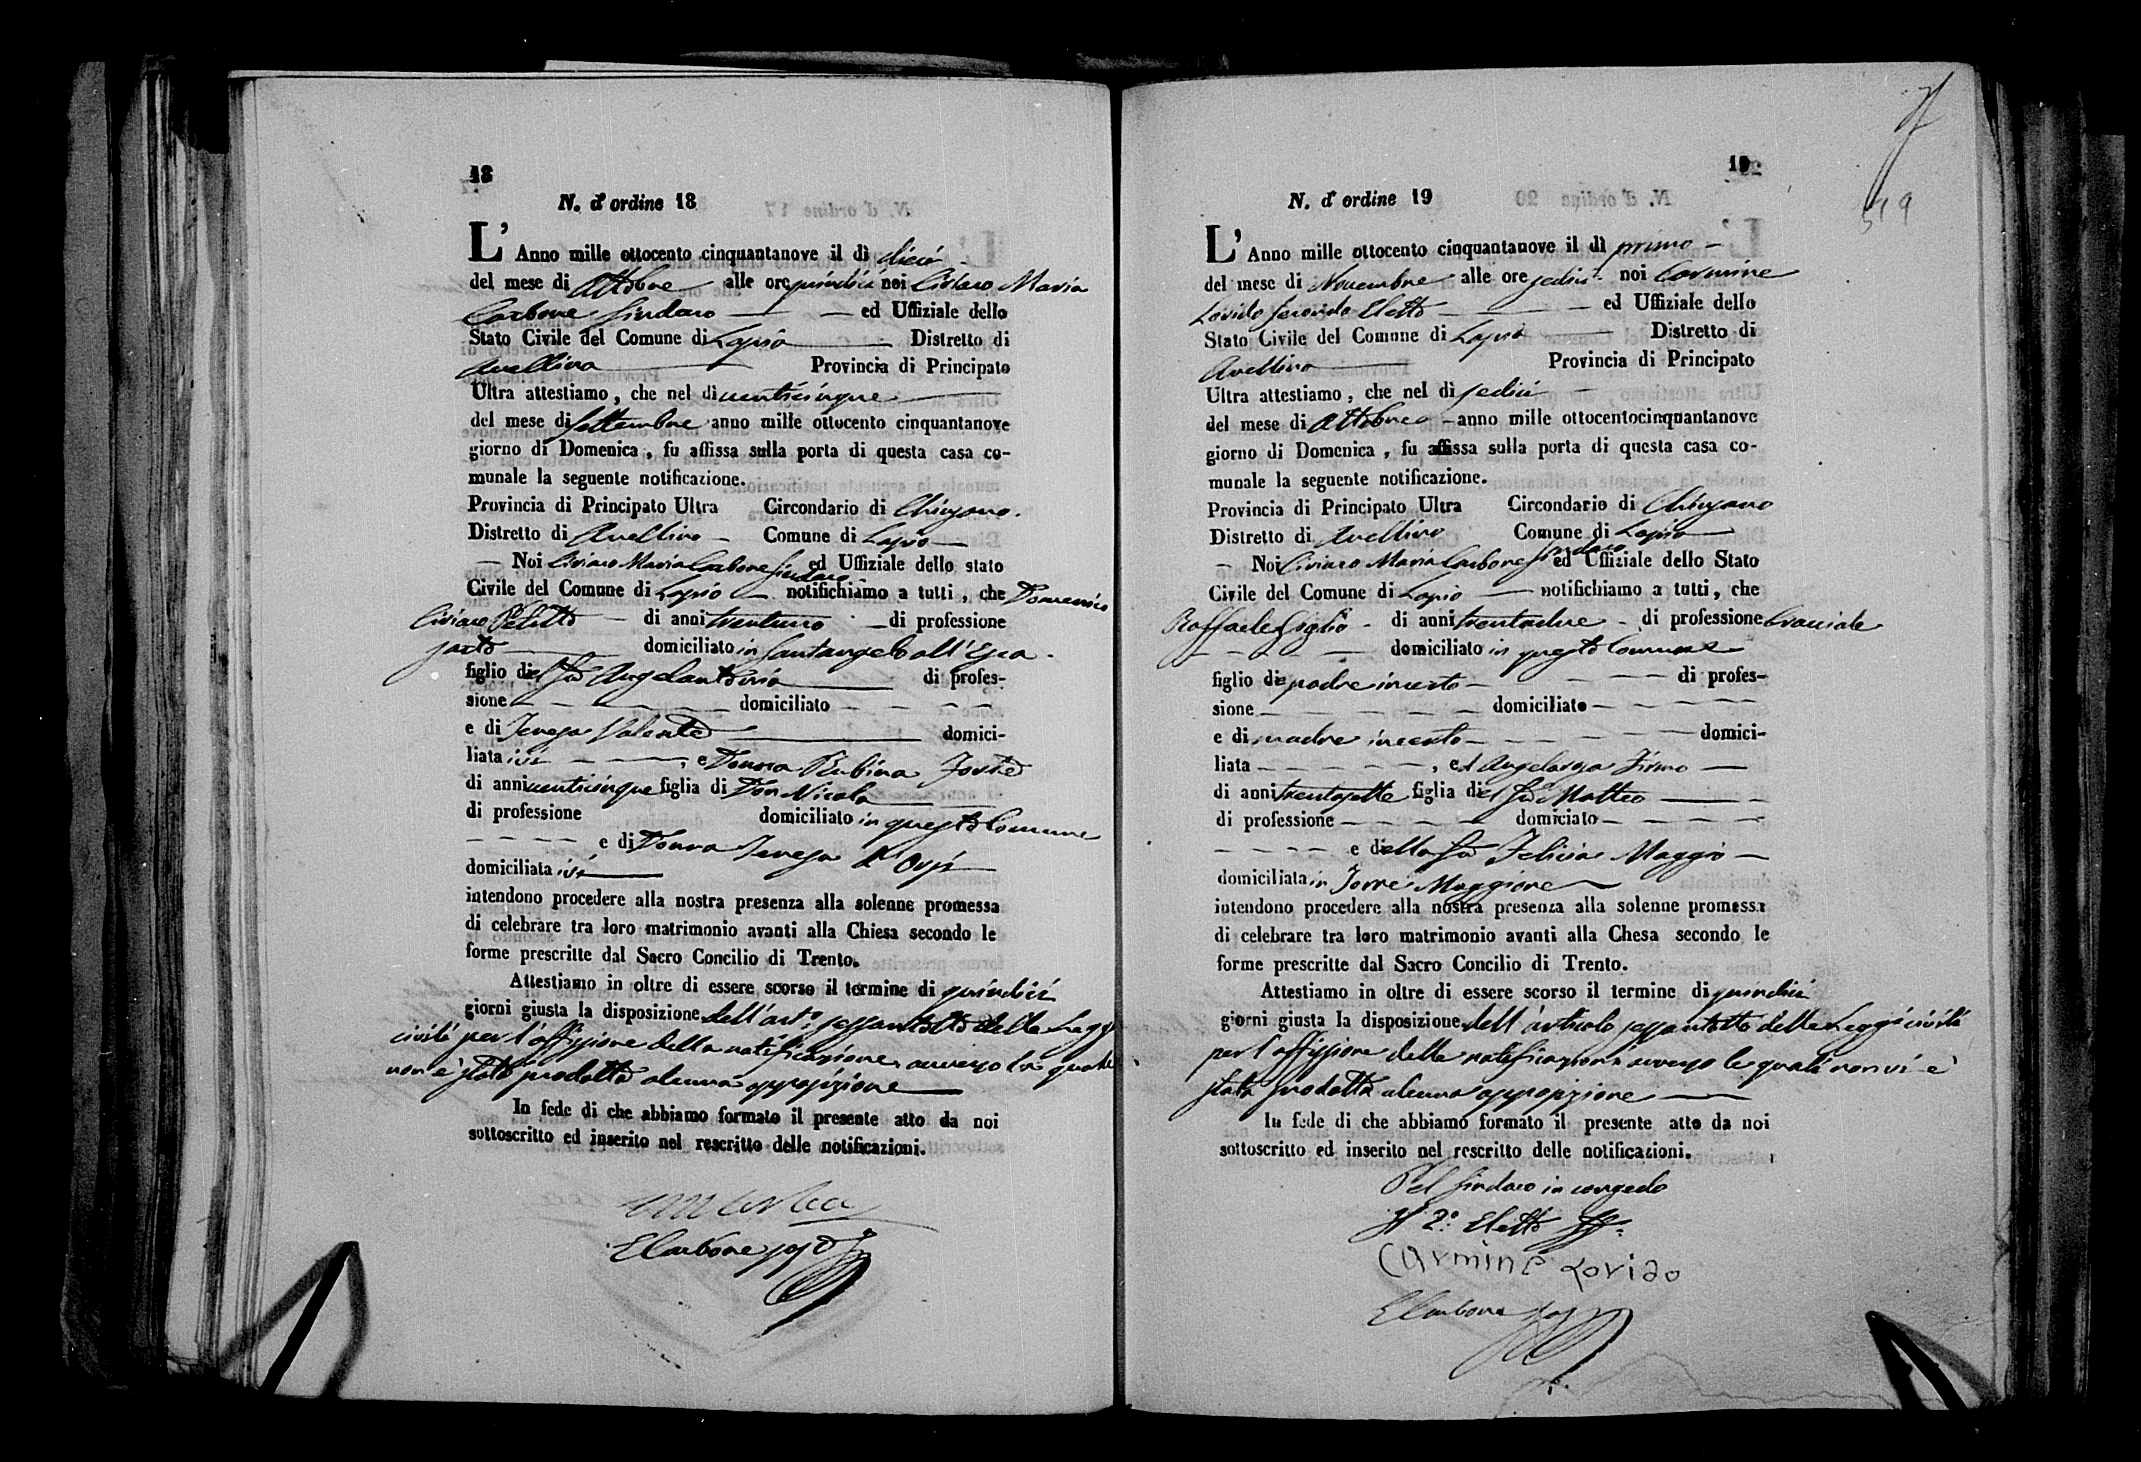 18
N. d'ordine 18
L'Anno mille ottocento cinquantanove il dì dieci
del mese di Ottobre alle ore quindici noi Ciriaco Maria
Carbone Sindaco ed Uffiziale dello
Stato Civile del Comune di Lapio Distretto di
Avellino Provincia di Principato
Ultra attestiamo, che nel dì venticinque
del mese di Settembre anno mille ottocento cinquantanove
giorno di Domenica, fu affissa sulla porta di questa casa co-
munale la seguente notificazione.
Provincia di Principato Ultra Circondario di Chiusano.
Distretto di Avellino Comune di Lapio
Noi Ciriaco Maria Carbone Sindaco ed Uffiziale dello stato
Civile del Comune di Lapio notifichiamo a tutti, che Domenico
Ciriaco Petitto di anni trentuno di professione
sarto domiciliato in Santangelo all'Esca
figlio del fu Angelantonio di profes-
sione domiciliato
e di Teresa Valente domici-
liata ivi, e Donna Rubina Forte
di anni venticinque figlia di Don Nicola
di professione domiciliato in questo Comune
e di Donna Teresa d'Orsi
domiciliata ivi
intendono procedere alla nostra presenza alla solenne promessa
di celebrare tra loro matrimonio avanti alla Chiesa secondo le
forme prescritte dal Sacro Concilio di Trento.
Attestiamo in oltre di essere scorso il termine di quindici
giorni giusta la disposizione dell'art.° sessantotto delle Leggi
civili per l'affissione della notificazione, avverso la quale
non è stata prodotta alcuna opposizione
In fede di che abbiamo formato il presente atto da noi
sottoscritto ed inserito nel rescritto delle notificazioni.
E Carbone
19
N. d'ordine 19
L'Anno mille ottocento cinquantanove il dì primo
del mese di Novembre alle ore sedici noi Carmine
Lorido secondo Eletto ed Uffiziale dello
Stato Civile del Comune di Lapio Distretto di
Avellino Provincia di Principato
Ultra attestiamo, che nel dì sedici
del mese di Ottobre anno mille ottocentocinquantanove
giorno di Domenica, fu affissa sulla porta di questa casa co-
munale la seguente notificazione.
Provincia di Principato Ultra Circondario di Chiusano
Distretto di Avellino Comune di Lapio
Noi Ciriaco Maria Carbone Sindaco ed Uffiziale dello Stato
Civile del Comune di Lapio notifichiamo a tutti, che
Raffaele Giglio di anni trentadue di professione bracciale
domiciliato in questo Comune
figlio di padre incerto di profes-
sione domiciliato
e di madre incerta domici-
liata, ed Angelarosa Firmo
di anni trentasette figlia del fu Matteo
di professione domiciato
e della fu Felicia Maggio
domiciliata in Torre Maggiore
intendono procedere alla nostra presenza alla solenne promessa
di celebrare tra loro matrimonio avanti alla Chesa secondo le
forme prescritte dal Sacro Concilio di Trento.
Attestiamo in oltre di essere scorso il termine di quindici
giorni giusta la disposizione dell'articolo sessantotto delle Leggi civili
per l'affissione della notificazione avverso le quali non vi è
stata prodotta alcuna opposizione
In fede di che abbiamo formato il presente atto da noi
sottoscritto ed inserito nel rescritto delle notificazioni.
Pel Sindaco in congedo
Il 2.° Eletto ff.
Carmine Lorido
E Carbone